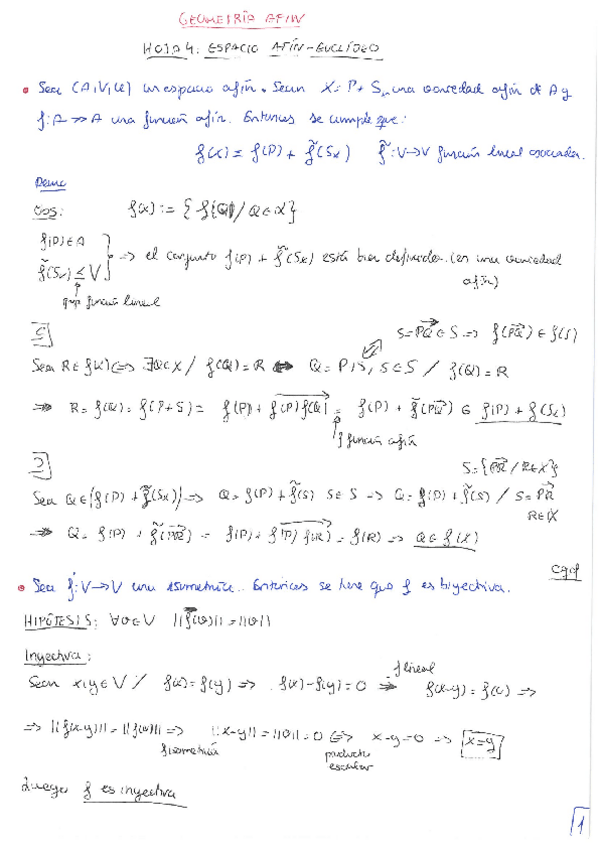 GEOMETRÍA AFÍN
HOJA 4: ESPACIO AFÍN-EUCLÍDEO
• Sea (A,V,φ) un espacio afín. Sean X = P + Sₓ una variedad afín de A y
f: A → A una función afín. Entonces se cumple que:
f(X) = f(P) + f̃(Sₓ) f̃: V → V función lineal asociada.
Demo
Obs: f(X) := { f(Q) / Q ∈ X }
f(P) ∈ A
f̃(Sₓ) ≤ V
⇒ el conjunto f(P) + f̃(Sₓ) está bien definido. (es una variedad afín)
función lineal
⊆] S = PQ⃗ ∈ S ⇒ f(PQ⃗) ∈ f(S)
Sea R ∈ f(X) ⇔ ∃Q ∈ X / f(Q) = R ⇔ Q = P + S, S ∈ S / f(Q) = R
⇒ R = f(Q) = f(P+S) = f(P) + f(P)f(Q)⃗ = f(P) + f̃(PQ⃗) ∈ f(P) + f(Sₓ)
f función afín
⊇] S = {PR⃗ / R ∈ X}
Sea Q ∈ (f(P) + f̃(Sₓ)) ⇒ Q = f(P) + f̃(S) S ∈ S ⇒ Q = f(P) + f̃(S) / S = PR⃗
R ∈ X
⇒ Q = f(P) + f̃(PR⃗) = f(P) + f(P)f(R)⃗ = f(R) ⇒ Q ∈ f(X)
cqd
• Sea f: V → V una isometría. Entonces se tiene que f es biyectiva.
HIPÓTESIS: ∀v ∈ V ||f(v)|| = ||v||
Inyectiva:
f lineal
Sean x,y ∈ V / f(x) = f(y) ⇒ f(x) - f(y) = 0 ⇒ f(x-y) = f(0) ⇒
⇒ ||f(x-y)|| = ||f(0)|| ⇒ ||x-y|| = ||0|| = 0 ⇔ x-y = 0 ⇒ x=y
f isometría producto
escalar
Luego f es inyectiva
1